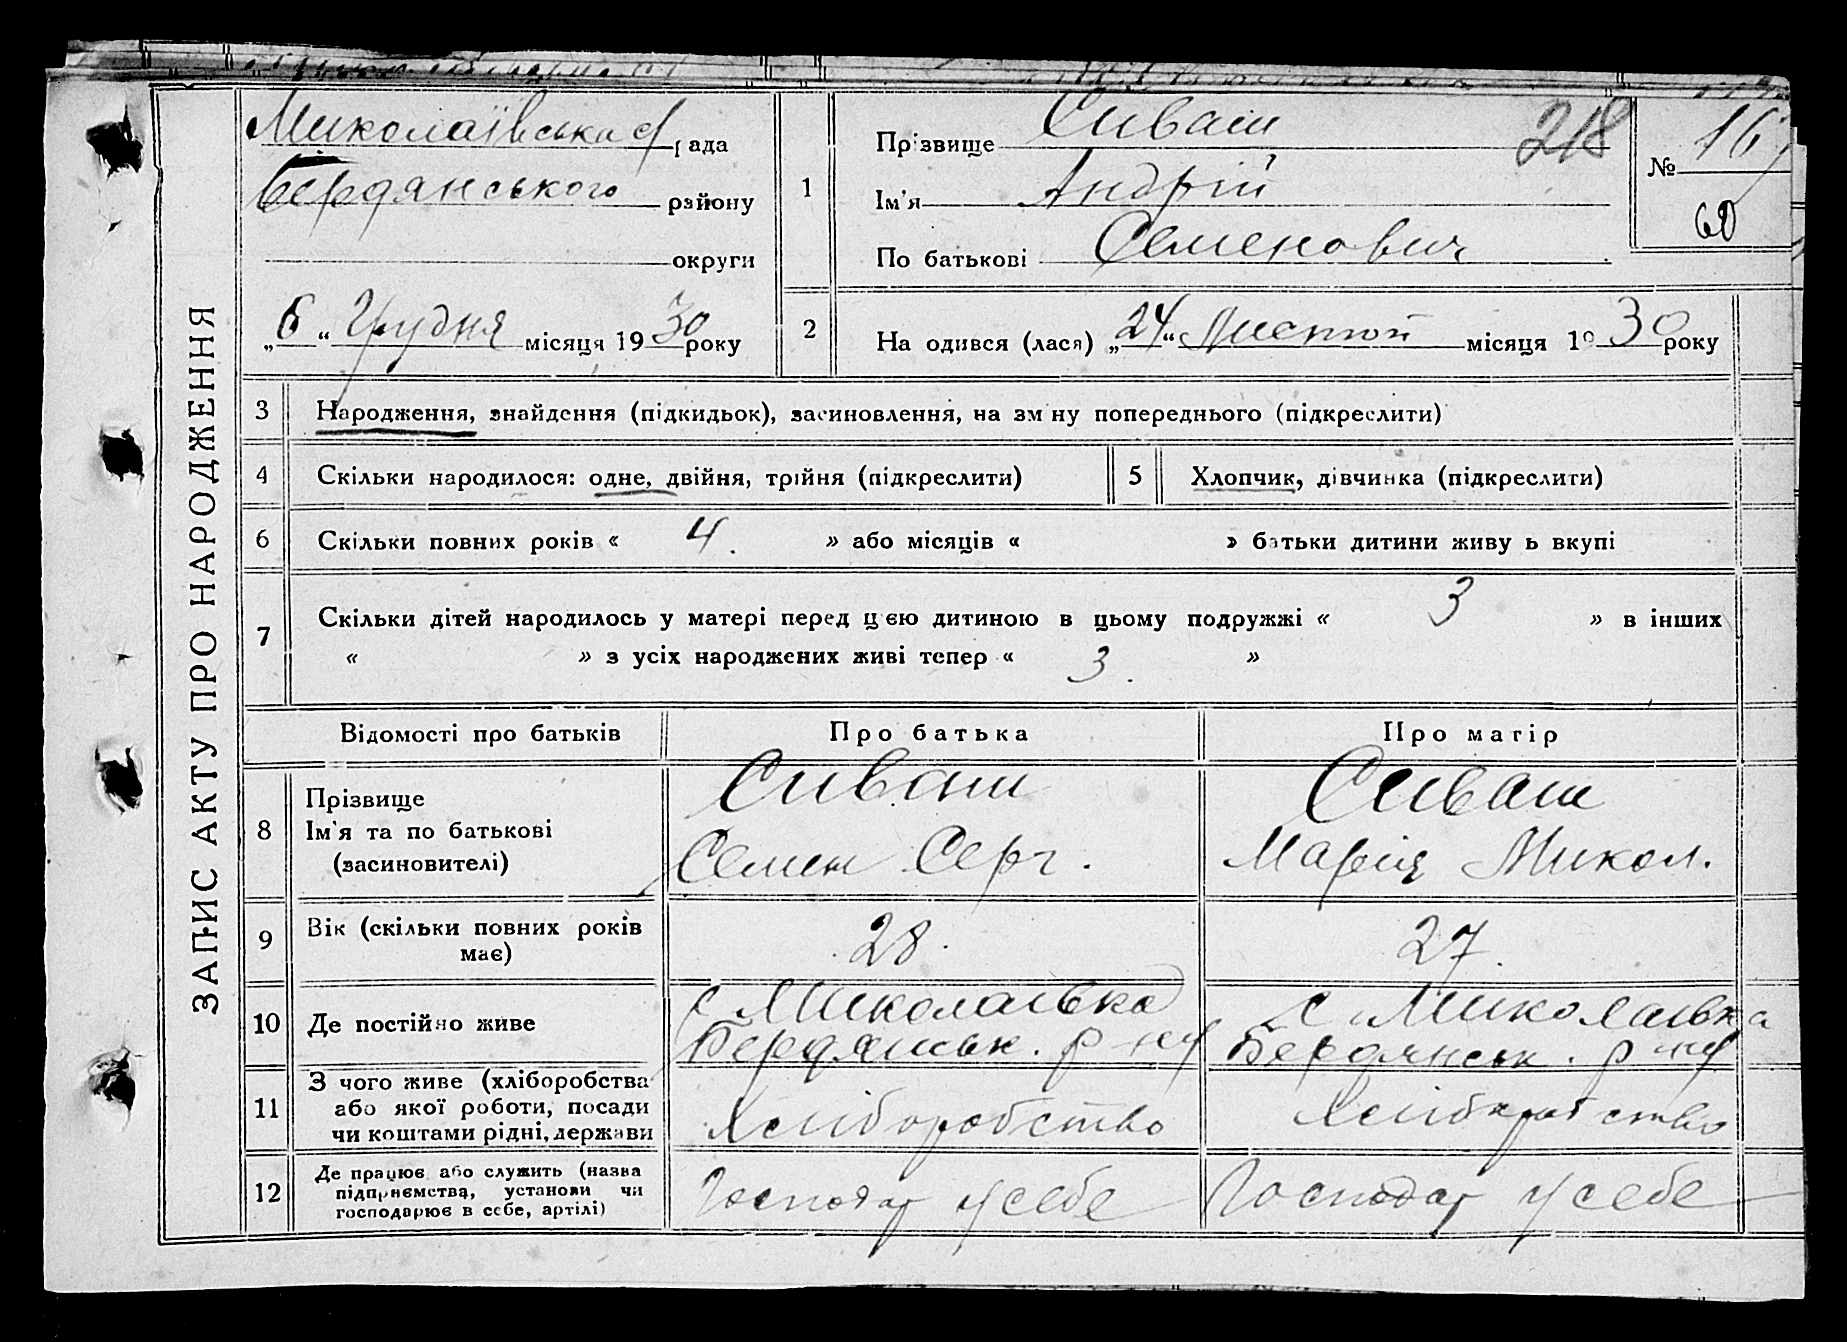 ЗАПИС АКТУ ПРО НАРОДЖЕННЯ
Миколаївська с/рада
Бердянського району
округи
„6“ Грудня місяця 1930 року
1
Прізвище Сиваш
Ім'я Андрій
По батькові Семенович
218
№ 16
60
2
На одився (лася) „24“ Листоп місяця 1930 року
3 Народження, знайдення (підкидьок), засиновлення, на зміну попереднього (підкреслити)
4 Скільки народилося: одне, двійня, трійня (підкреслити)
5 Хлопчик, дівчинка (підкреслити)
6 Скільки повних років « 4. » або місяців « » батьки дитини живуть вкупі
7 Скільки дітей народилось у матері перед цією дитиною в цьому подружжі « 3 » в інших
« » з усіх народжених живі тепер « 3. »
Відомості про батьків Про батька Про матір
8 Прізвище
Ім'я та по батькові
(засиновителі)
Сиваш
Семен Серг.
Сиваш
Марія Микол.
9 Вік (скільки повних років
має)
28.
27.
10 Де постійно живе
с Миколаївка
Бердянськ. р-ну
с. Миколаївка
Бердянськ. р-ну
11 З чого живе (хліборобства
або якої роботи, посади
чи коштами рідні, держави
Хліборобство
Хліборобство
12 Де працює або служить (назва
підприємства, установи чи
господарює в себе, артілі)
Господар у себе
Господар у себе